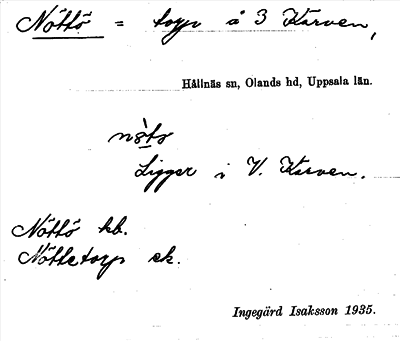 Nöttö = torp å 3 Karven,
Hållnäs sn, Olands hd, Uppsala län.
Ligger i V. Karven.
Nöttö kb.
Nöttetorp ek.
Ingegärd Isaksson 1935.